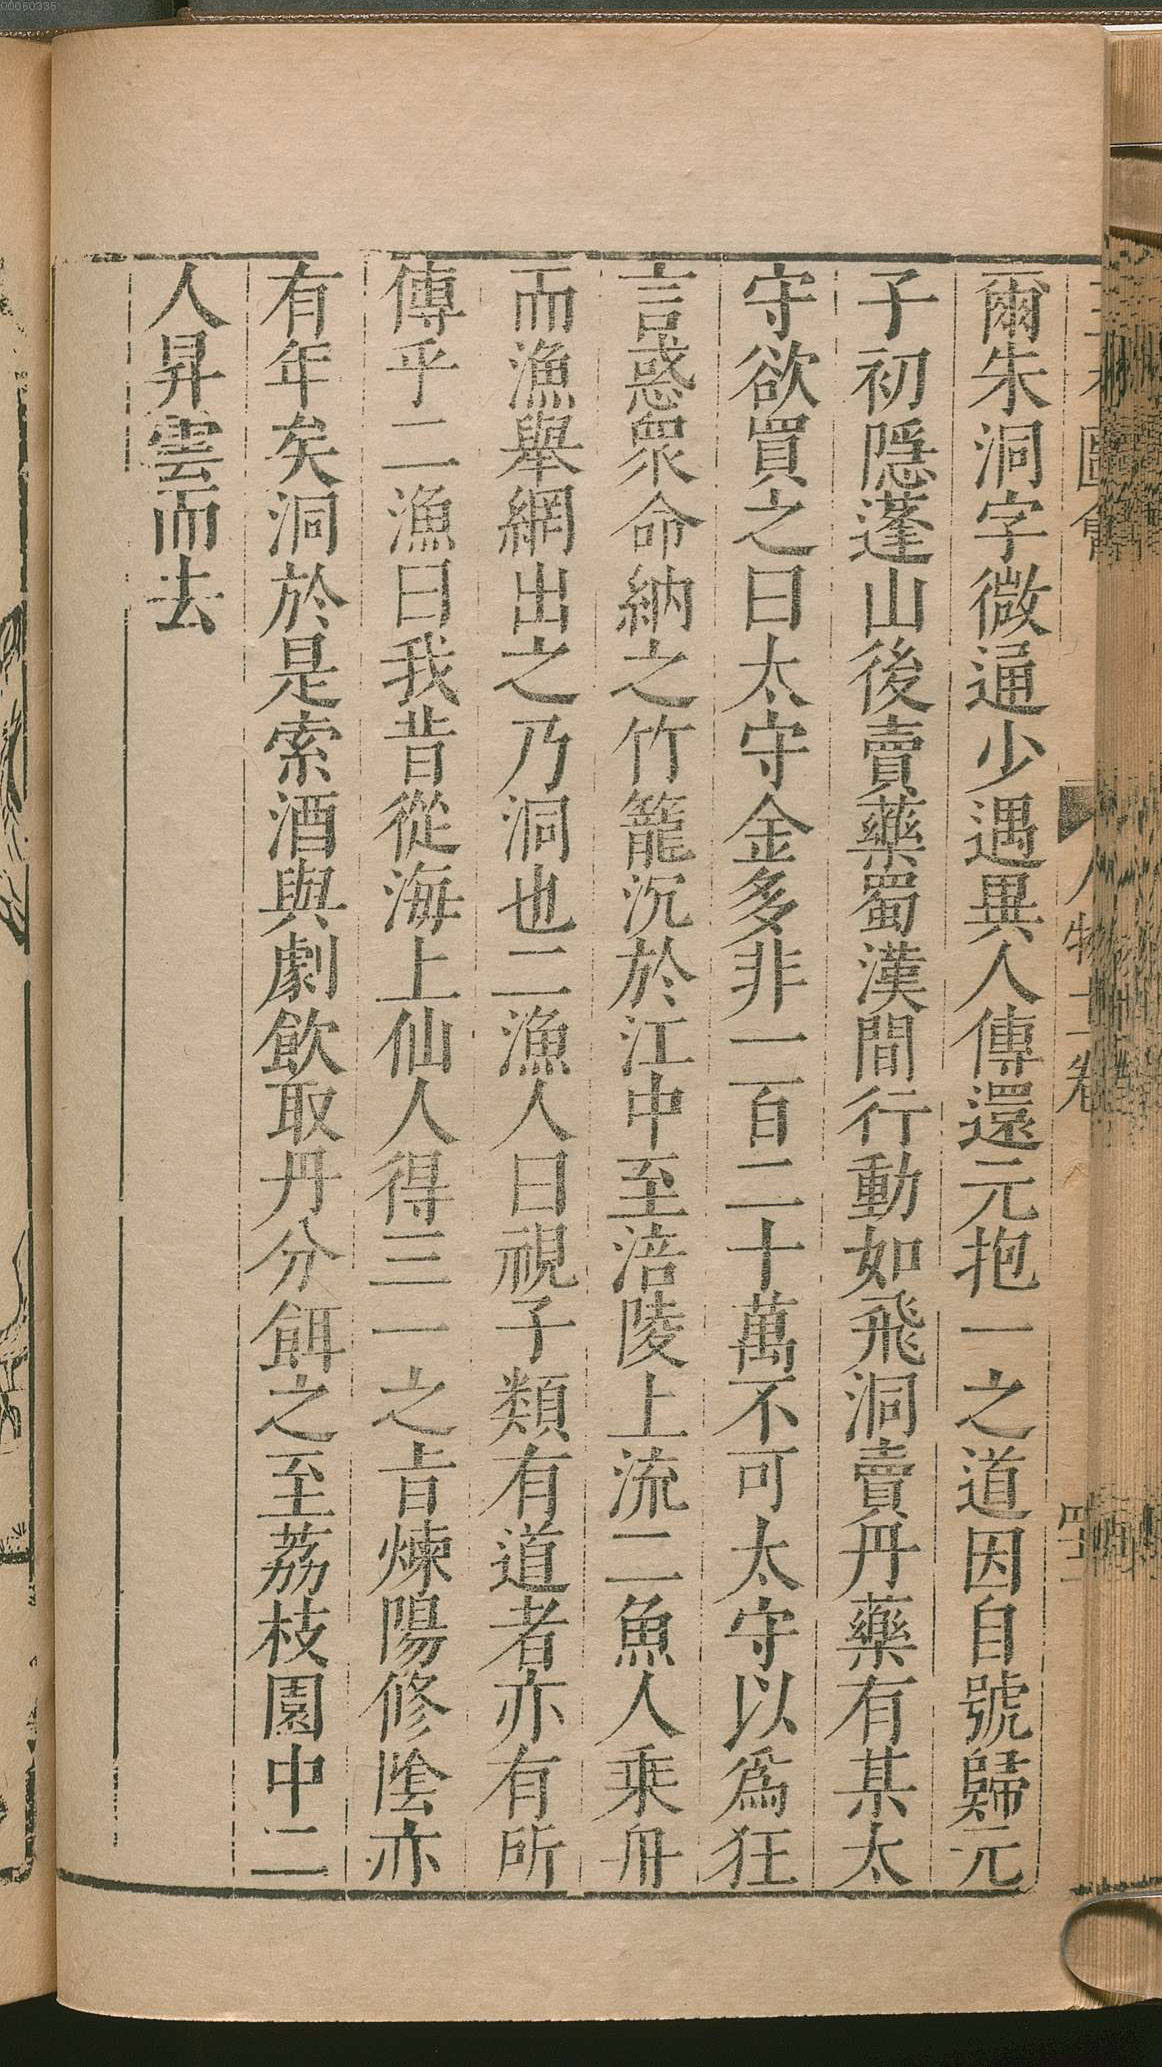 爾朱洞字微通少遇異人傳還元抱一之道因自號歸元
子初隱蓬山後賣藥蜀漢間行動如飛洞賣丹藥有某太
守欲買之曰太守金多非一百二十萬不可太守以爲狂
言惑衆命納之竹籠沉於江中至涪陵上流二魚人乘舟
而漁舉網出之乃洞也二漁人曰視子類有道者亦有所
傳乎二漁曰我昔從海上仙人得三一之旨煉陽修陰亦
有年矣洞於是索酒與劇飲取丹分餌之至荔枝園中二
人昇雲而去